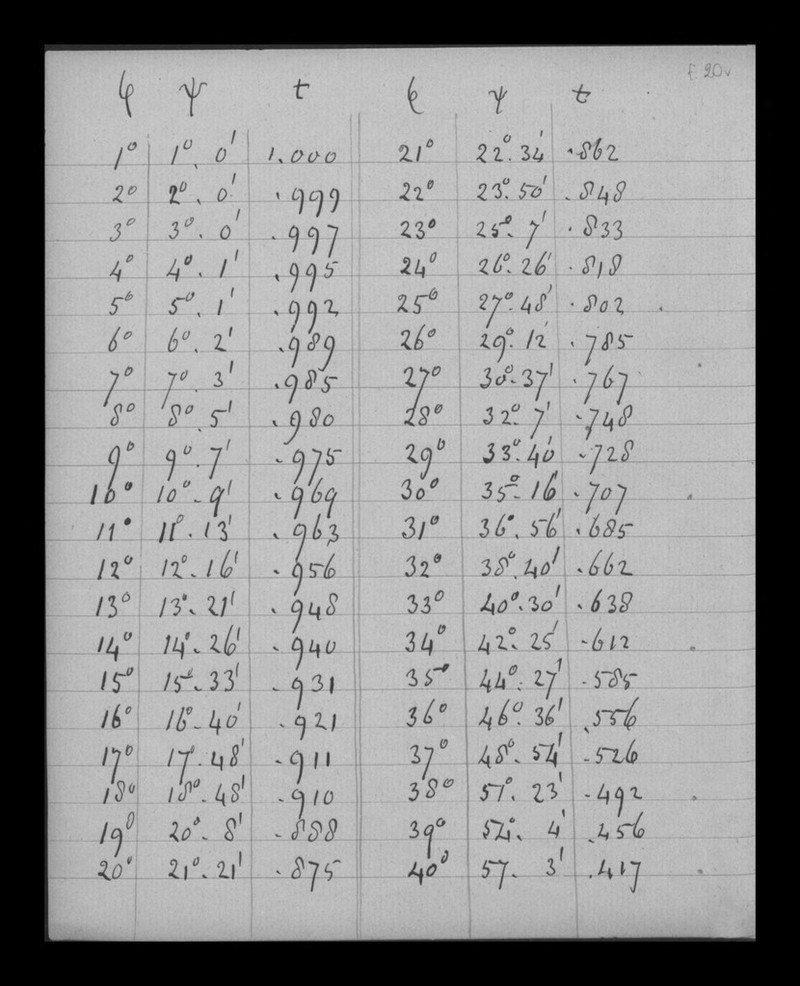 f 20v
φ ψ t φ ψ t
1° 1°. 0' 1.000 21° 22°.34' .862
2° 2°. 0' .999 22° 23°.50' .848
3° 3°. 0' .997 23° 25°. 7' .833
4° 4°. 1' .995 24° 26°.26' .818
5° 5°. 1' .992 25° 27°.48' .802
6° 6°. 2' .989 26° 29°.12' .785
7° 7°. 3' .985 27° 30°.37' .767
8° 8°. 5' .980 28° 32°. 7' .748
9° 9°. 7' .975 29° 33°.40' .728
10° 10°. 9' .969 30° 35°.16' .707
11° 11°.13' .963 31° 36°.56' .685
12° 12°.16' .956 32° 38°.40' .662
13° 13°.21' .948 33° 40°.30' .638
14° 14°.26' .940 34° 42°.25' .612
15° 15°.33' .931 35° 44°.27' .585
16° 16°.40' .921 36° 46°.36' .556
17° 17°.48' .911 37° 48°.54' .526
18° 18°.48' .910 38° 51°. 23' .492
19° 20°. 8' .888 39° 54°. 4' .456
20° 21°.21' .875 40° 57. 3' .417